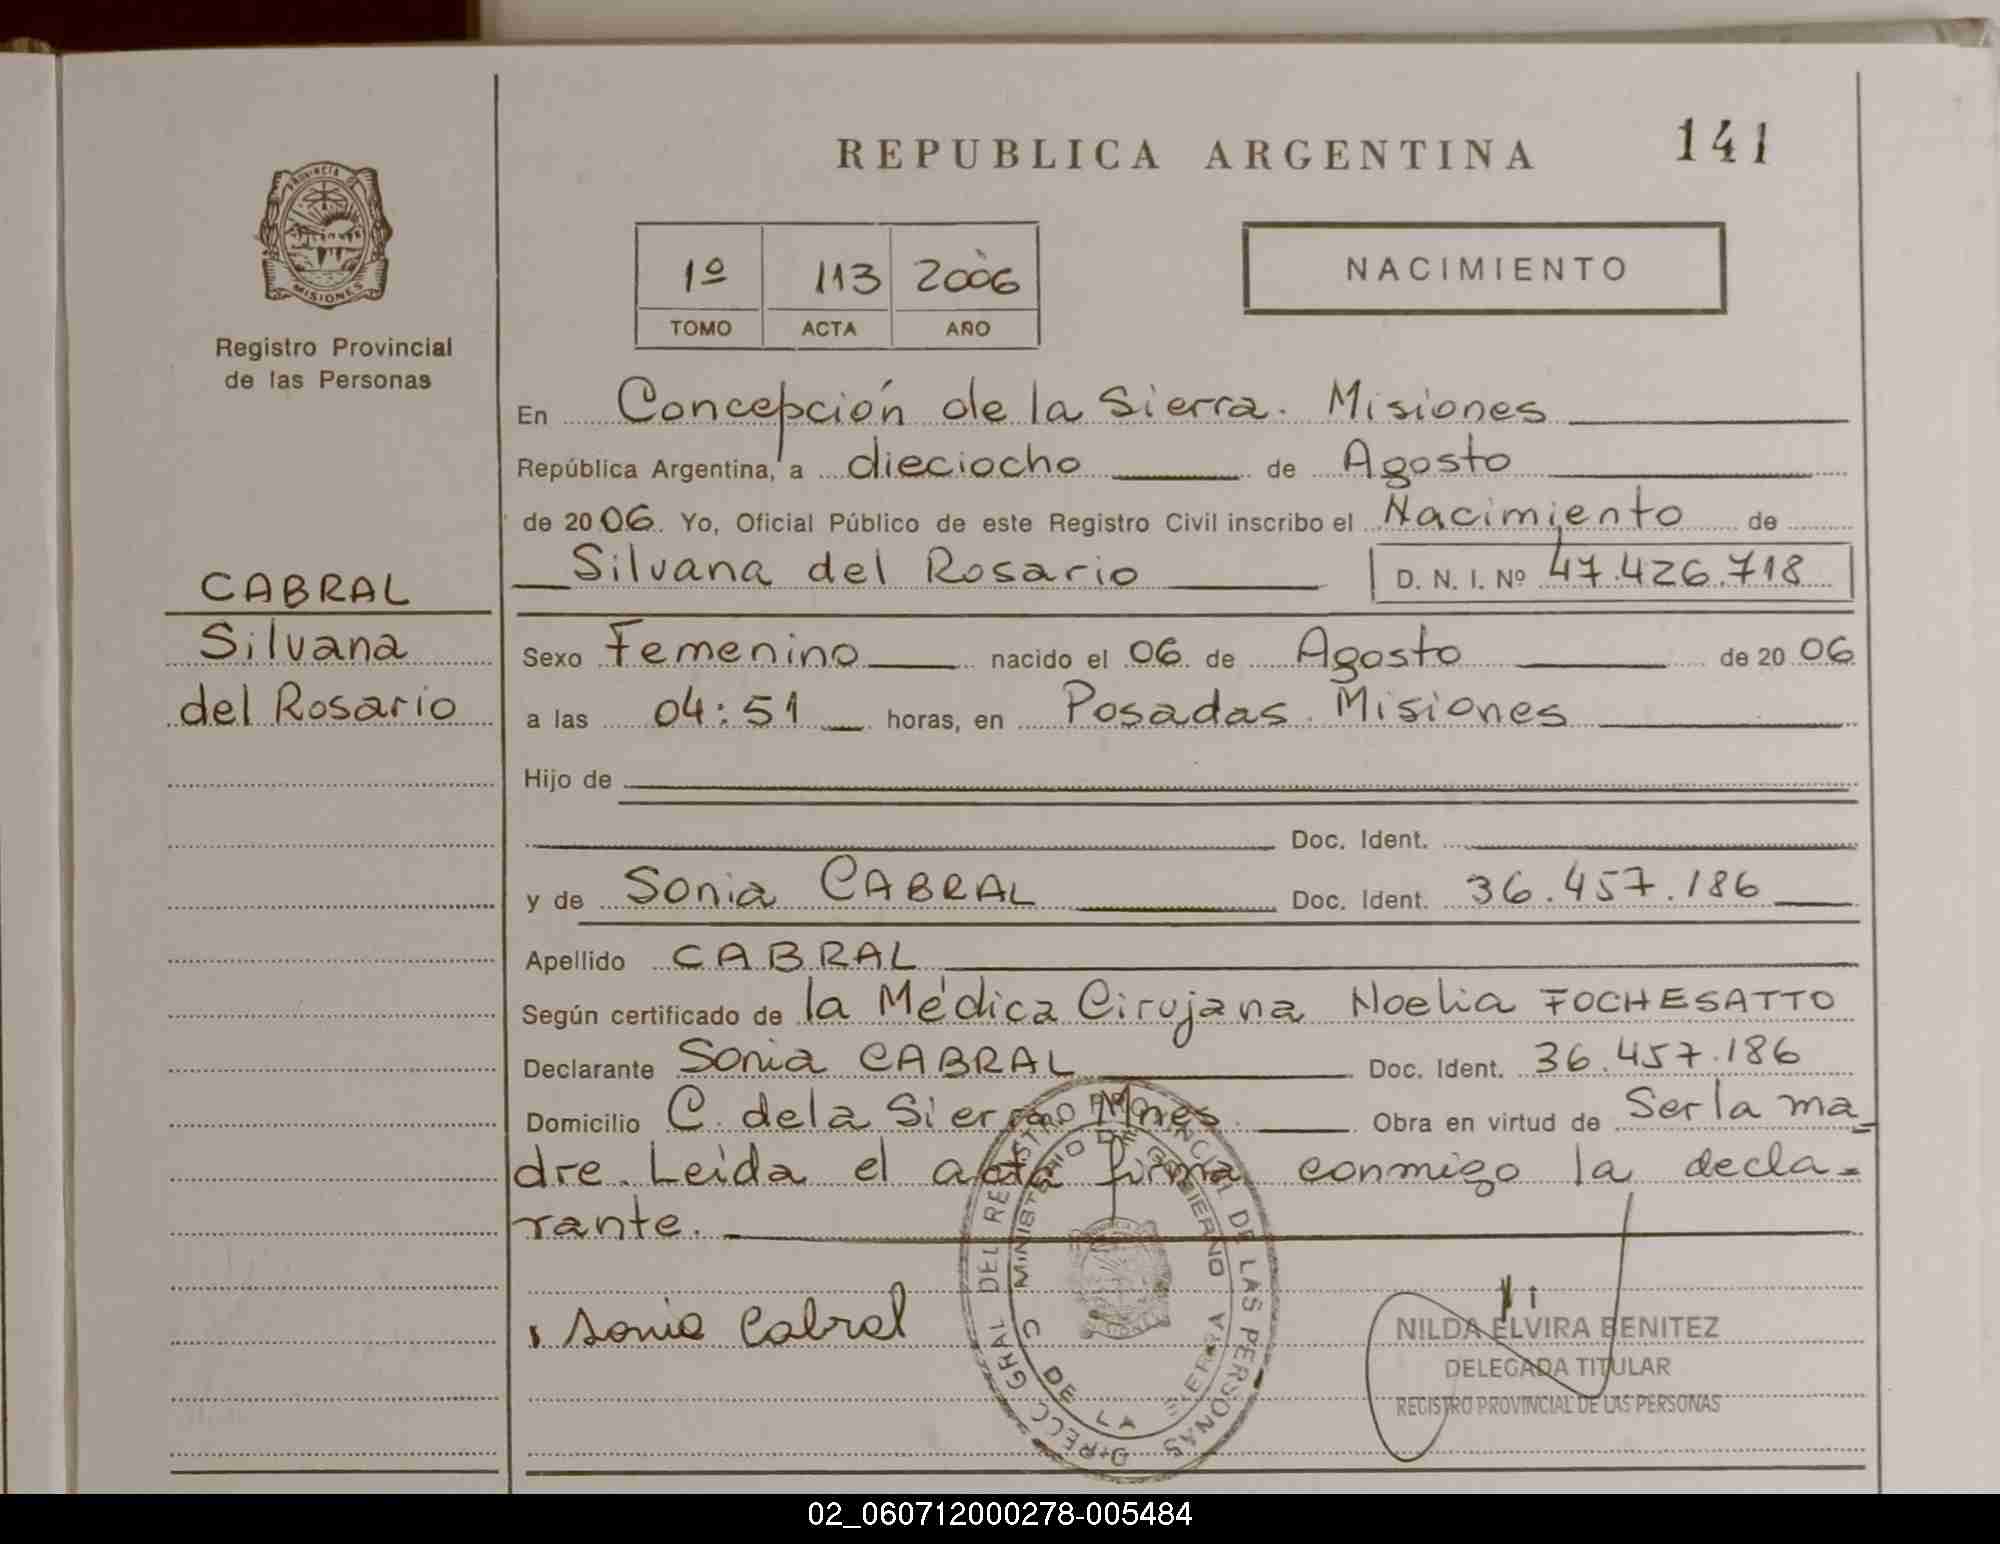 REPUBLICA ARGENTINA
141
PROVINCIA DE
MISIONES
Registro Provincial
de las Personas
1º 113 2006
TOMO ACTA AÑO
NACIMIENTO
En Concepción de la Sierra. Misiones
República Argentina, a dieciocho de Agosto
de 2006. Yo, Oficial Público de este Registro Civil inscribo el Nacimiento de
Silvana del Rosario D. N. I. Nº 47.426.718
CABRAL
Silvana
del Rosario
Sexo Femenino nacido el 06 de Agosto de 2006
a las 04:51 horas, en Posadas. Misiones
Hijo de
Doc. Ident.
y de Sonia CABRAL Doc. Ident. 36.457.186
Apellido CABRAL
Según certificado de la Médica Cirujana Noelia FOCHESATTO
Declarante Sonia CABRAL Doc. Ident. 36.457.186
Domicilio C. de la Sierra Mnes. Obra en virtud de Ser la ma
dre. Leída el acta firma conmigo la decla-
rante.
Sonia Cabral
DIRECC GRAL DEL REGISTRO PROVINCIAL DE LAS PERSONAS
MINISTERIO DE GOBIERNO
C DE LA SIERRA
NILDA ELVIRA BENITEZ
DELEGADA TITULAR
REGISTRO PROVINCIAL DE LAS PERSONAS
02_060712000278-005484